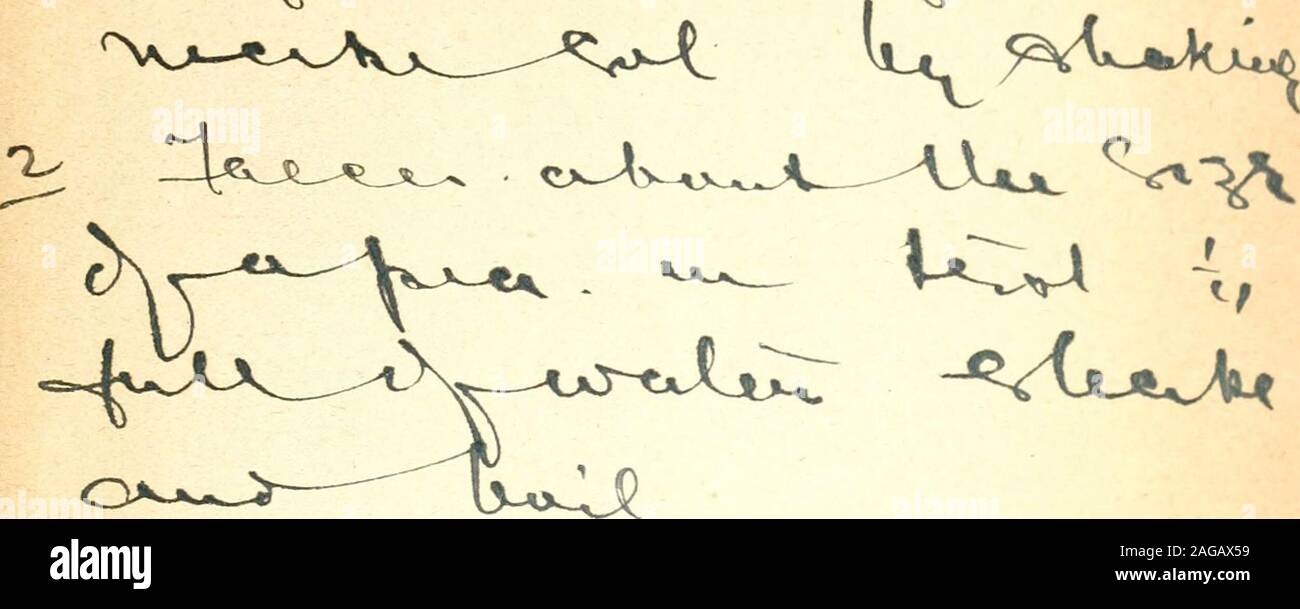 make sol by shaking
2 Faeces about the size
of a pea. in test
full of water shake
and boil
alamy
Image ID: 2AGAX59
www.alamy.com